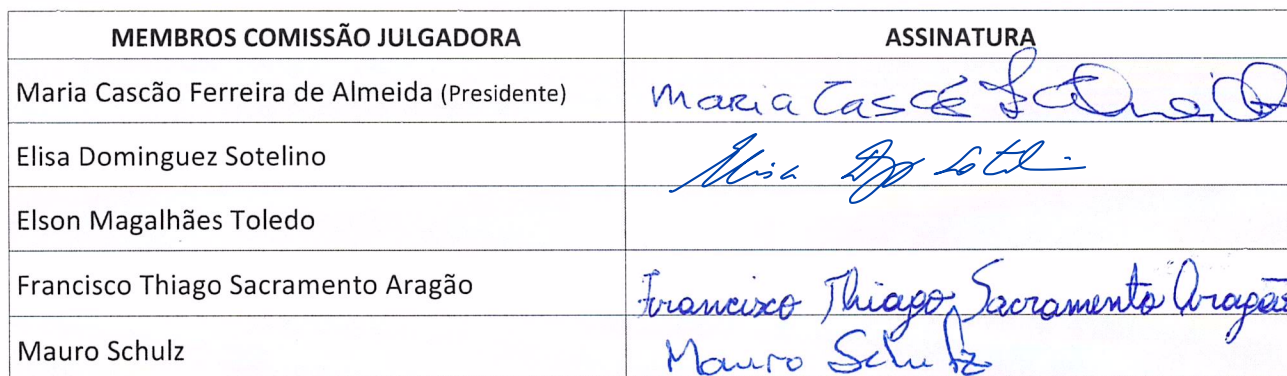 MEMBROS COMISSÃO JULGADORA ASSINATURA
Maria Cascão Ferreira de Almeida (Presidente) Maria Cascã
Elisa Dominguez Sotelino Elisa
Elson Magalhães Toledo
Francisco Thiago Sacramento Aragão Francisco Thiago Sacramento Aragão
Mauro Schulz Mauro Schulz